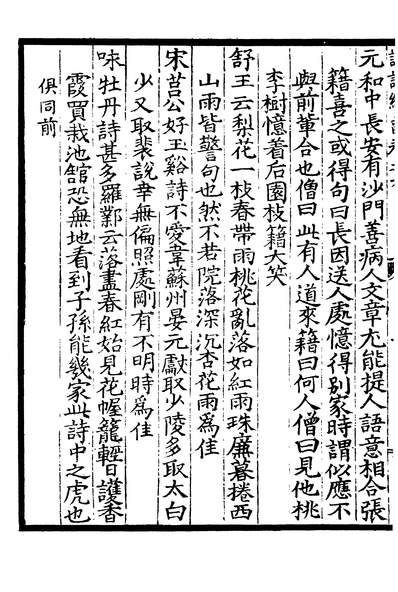 元和中長安有沙門善病人文章尤能提人語意相合張
籍喜之或得句曰長因送人處憶得别家時謂似應不
與前輩合也僧曰此有人道來籍曰何人僧曰見他桃
李樹憶着后園枝籍大笑
舒王云梨花一枝春帶雨桃花亂落如紅雨珠廉暮捲西
山雨皆警句也然不若院落深沉杏花雨爲佳
宋莒公好玉谿詩不愛韋蘇州晏元獻取少陵多取太白
少又取裴說幸無偏照處剛有不明時爲佳
咏牡丹詩甚多羅鄴云落盡春紅始見花幄籠輕日護香
霞買栽池舘恐無地看到子孫能幾家此詩中之虎也
俱同前